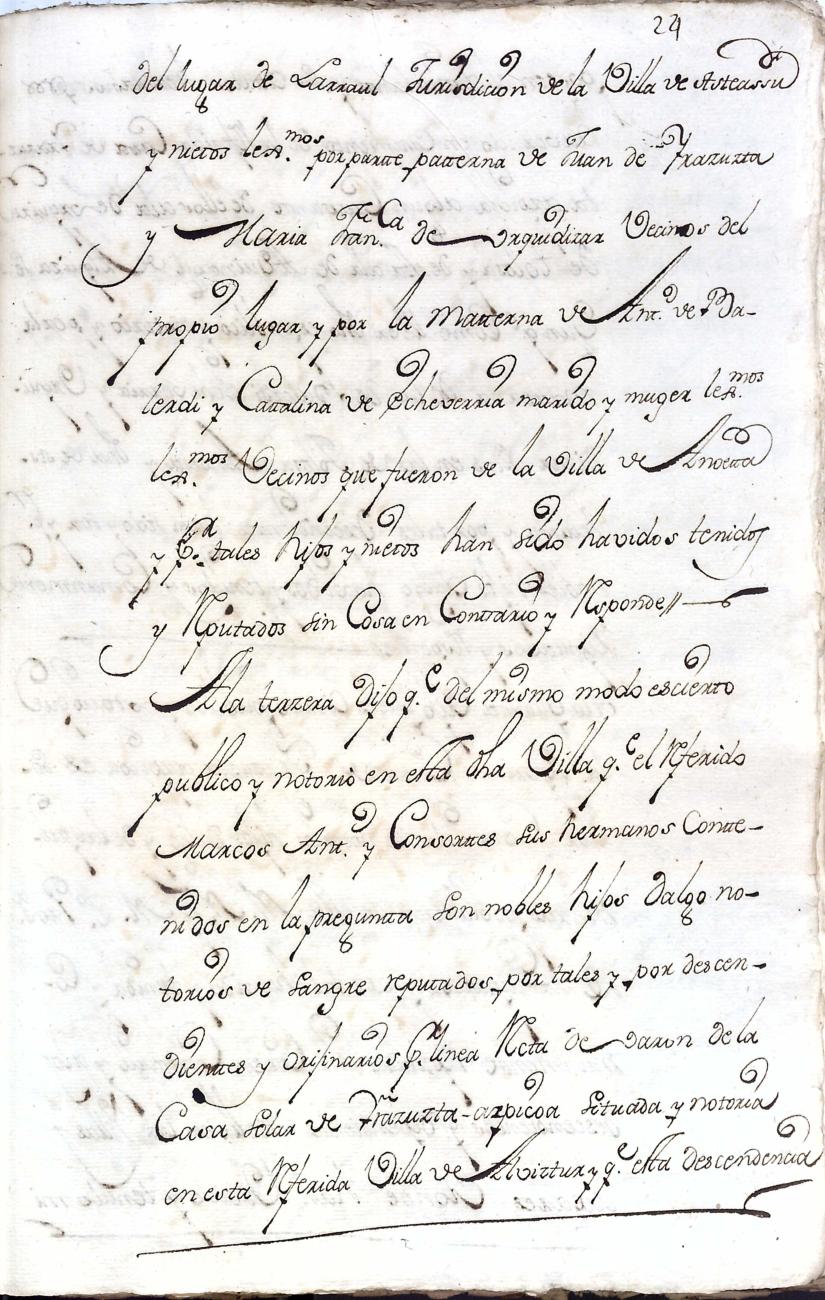 24
del lugar de Larraul Jurisdicion de la Villa de Asteassu
y nietos lexmos por partte patterna de Juan de Yrazuzta
y Maria Franca de Urquidizar Vecinos del
propio lugar y por la Matterna de Anto de Ba-
lerdi y Cattalina de Echeverria marido y muger lexmos
lexmos Vecinos que fueron de la Villa de Andetta
y Pr tales hijos y nietos han sido havidos tenidos
y Reputados sin Cosa en Conttrario y Responde//
A la terzera Dijo qe del mismo modo es cierto
publico y notorio en esta dha Villa qe el Referido
Marcos Anto y Consorttes sus hermanos Contte-
nidos en la preguntta son nobles hijos dalgo no-
torios de sangre reputados por tales y por descen-
dienttes y orijinarios Pr linea Recta de varon de la
Casa solar de Yrazuzta-azpicoa situada y notoria
en esta Referida Villa de Alviztur y qe esta descendencia